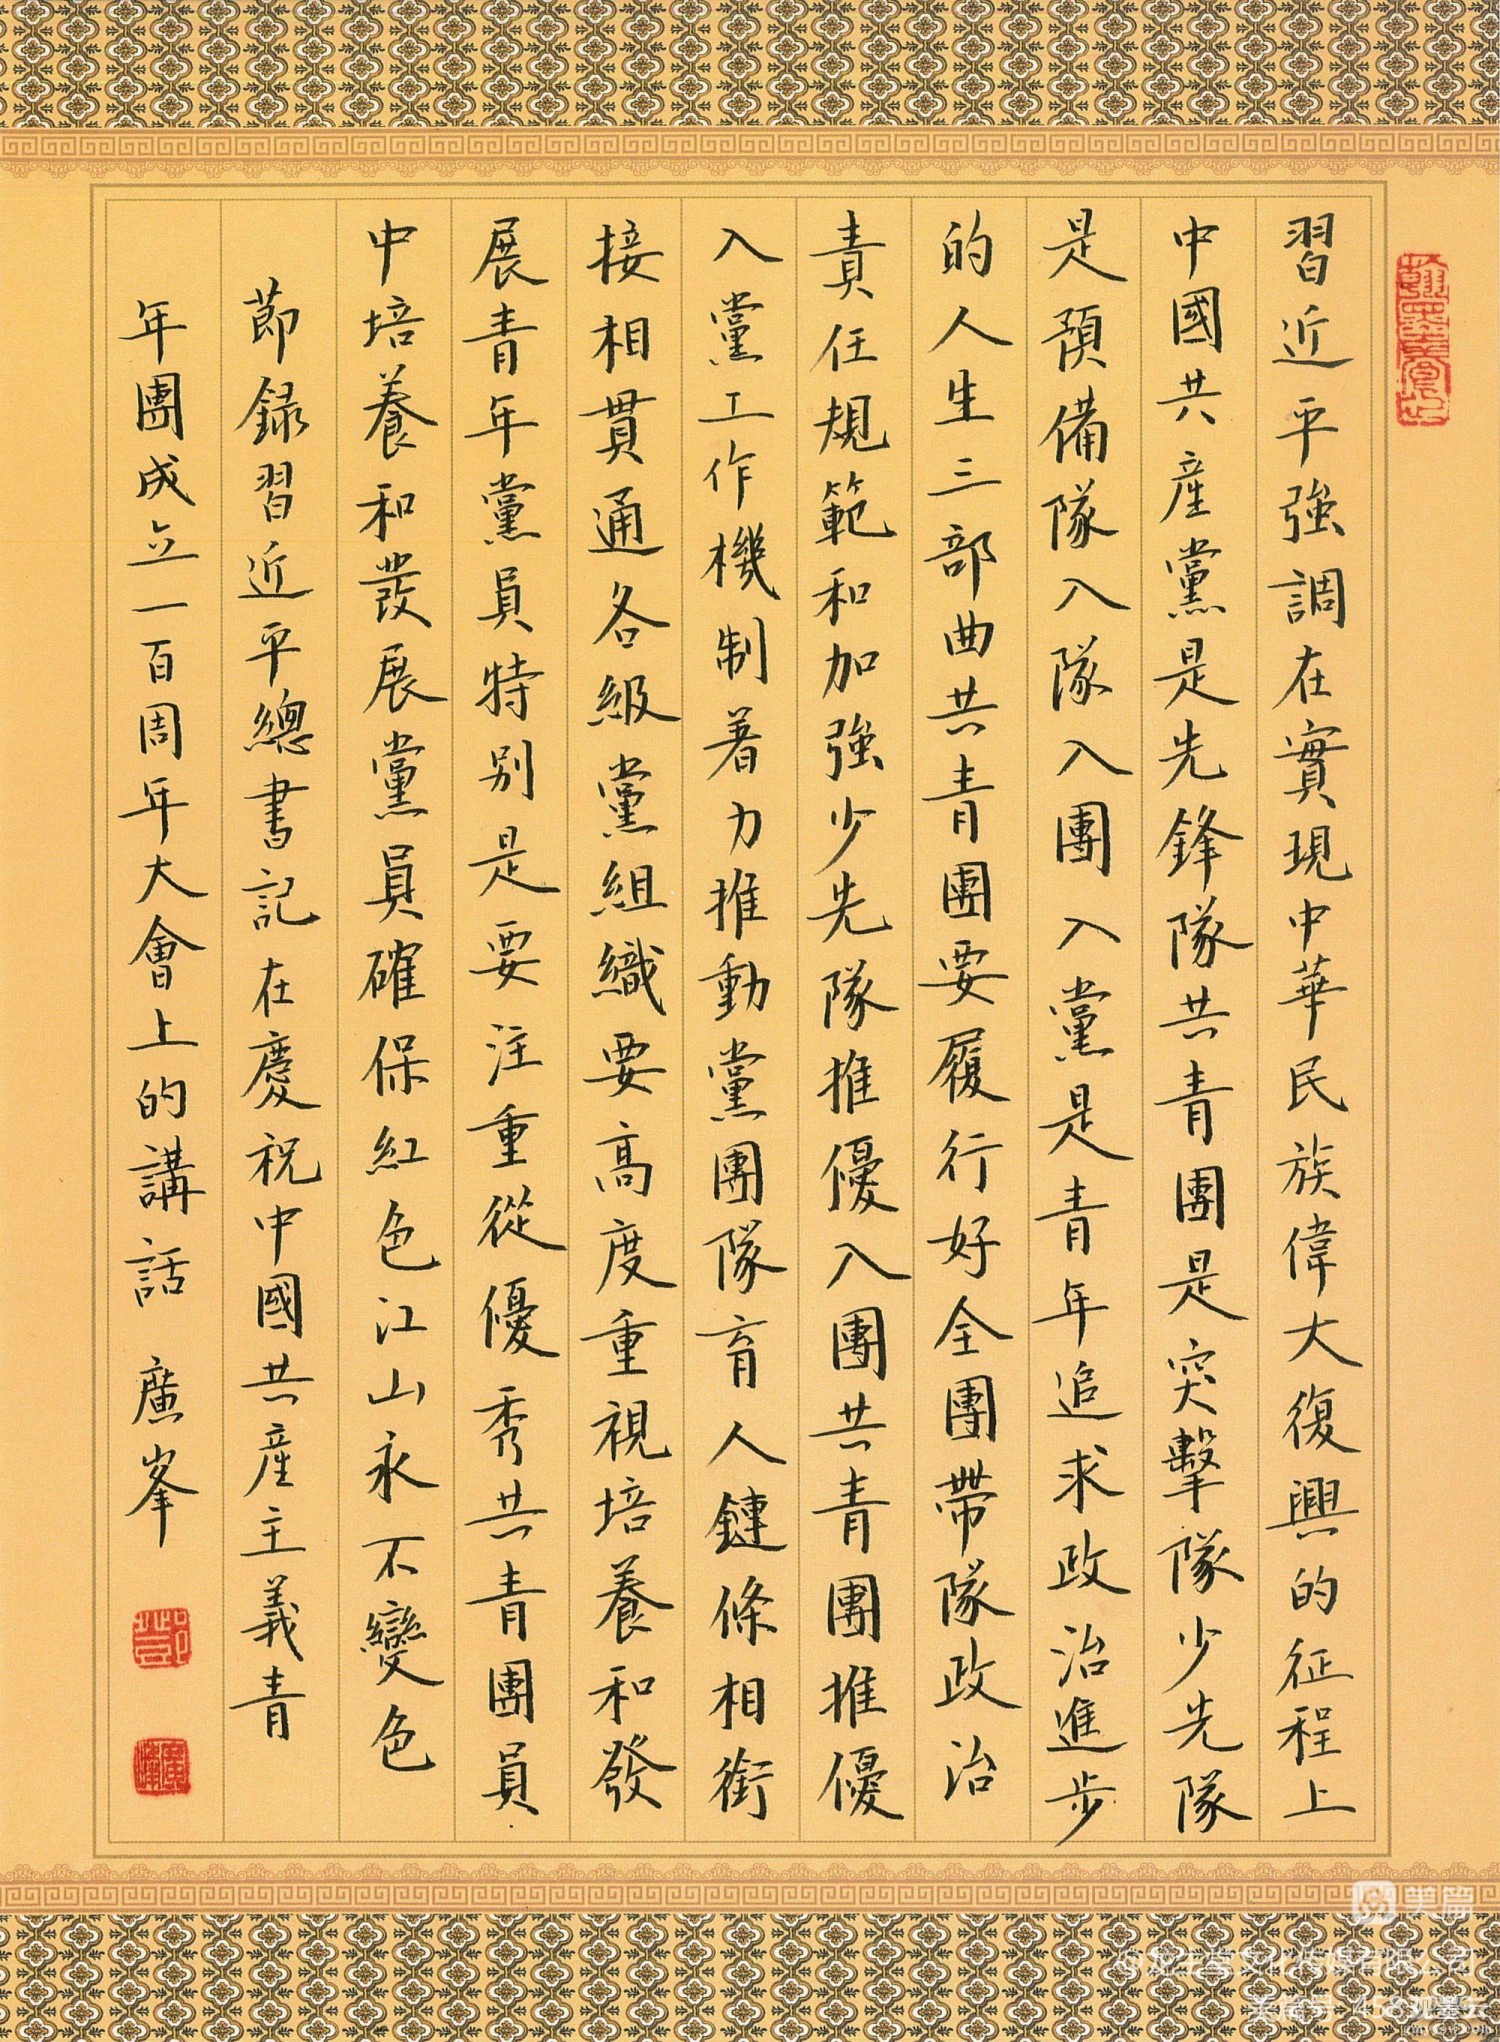 習近平強調在實現中華民族偉大復興的征程上
中國共産黨是先鋒隊共青團是突擊隊少先隊
是預備隊入隊入團入黨是青年追求政治進步
的人生三部曲共青團要履行好全團帶隊政治
責任規範和加強少先隊推優入團共青團推優
入黨工作機制着力推動黨團隊育人鏈條相銜
接相貫通各級黨組織要高度重視培養和發
展青年黨員特别是要注重從優秀共青團員
中培養和發展黨員確保紅色江山永不變色
節録習近平總書記在慶祝中國共産主義青
年團成立一百周年大會上的講話 廣峯
美篇